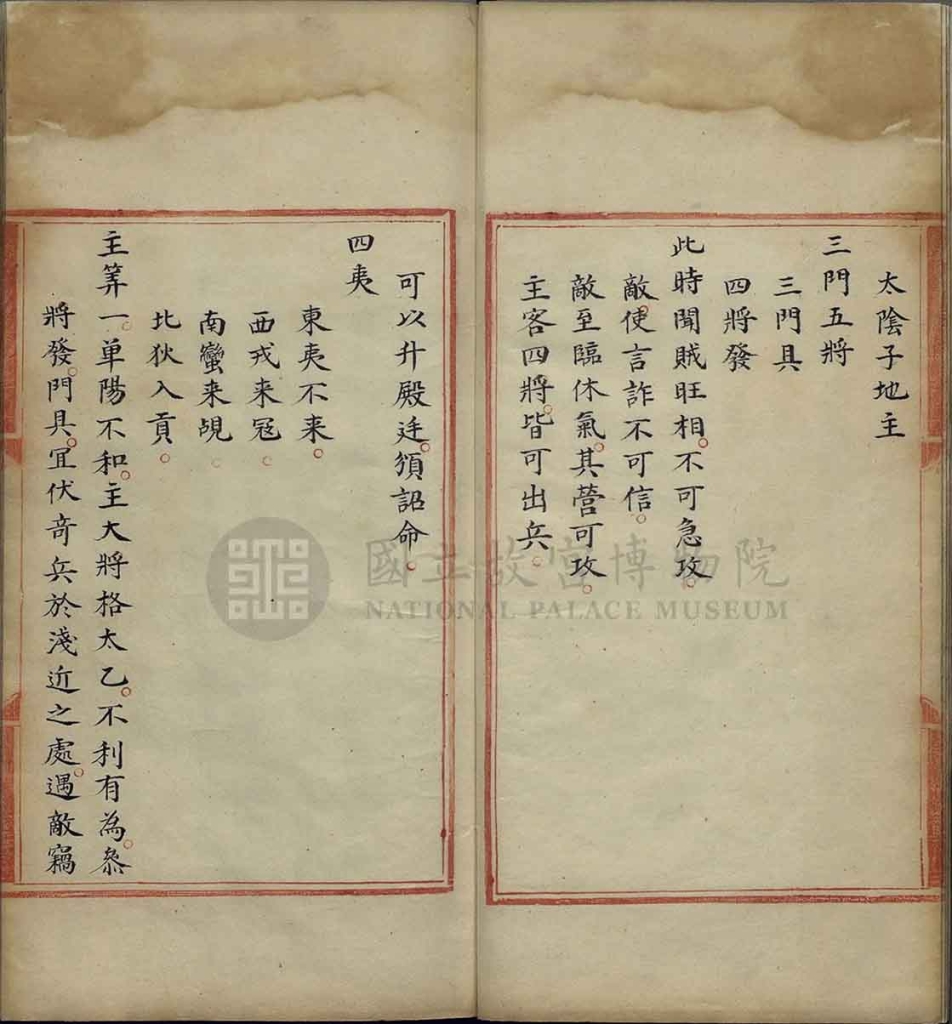 太陰子地主
三門五將
三門具
四將發
此時聞賊旺相。不可急攻。
敵使言詐不可信。
敵至臨休氣。其營可攻。
主客四將。皆可出兵。
可以升殿廷。頒詔命。
四夷
東夷不来。
西戎来寇。
南蠻来覘。
北狄入貢。
主筭一。单陽不和。主大將格太乙。不利有為。叅
將發。門具。冝伏奇兵於淺近之處。遇敵竊
國立故宮博物院
NATIONAL PALACE MUSEUM